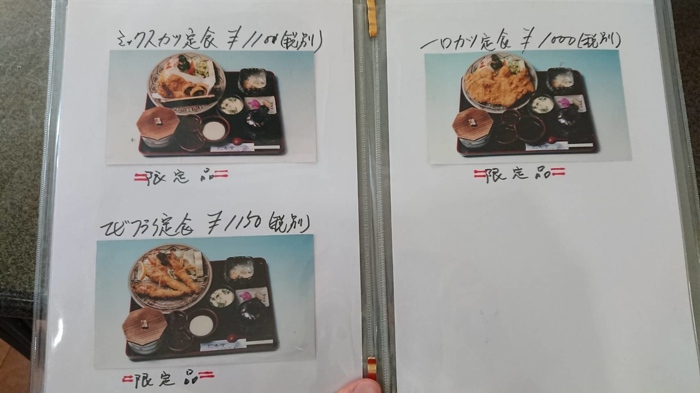 ミックスカツ定食 ¥1100(税別)
限定品
エビフライ定食 ¥1150(税別)
限定品
一口カツ定食 ¥1000(税別)
限定品